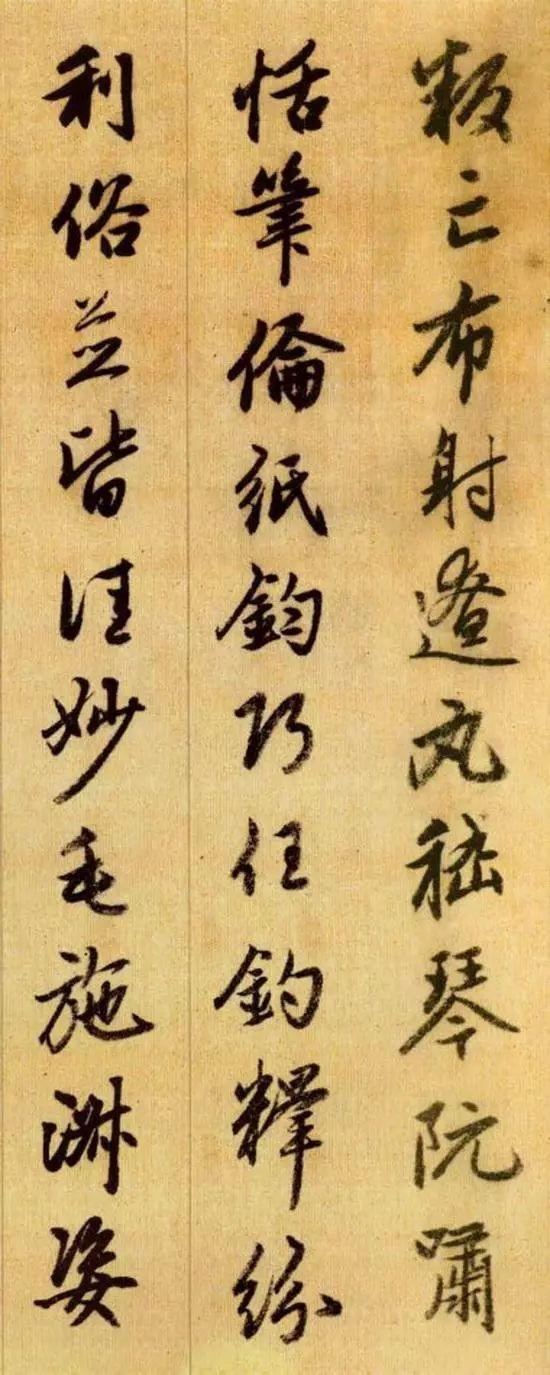 叛亡布射遼丸嵇琴阮嘯
恬筆倫紙鈞巧任釣釋紛
利俗並皆佳妙毛施淑姿